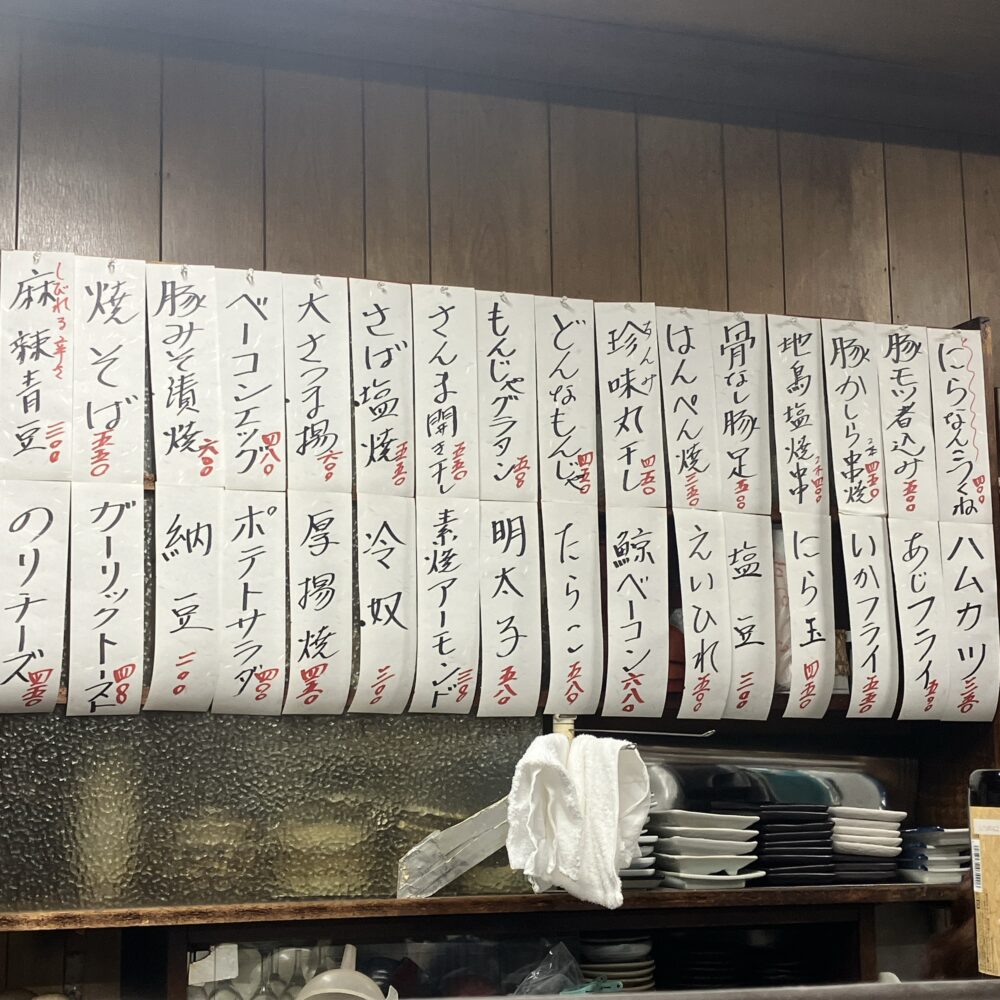 にらなんこつくね 四〇〇
豚モツ煮込み 五五〇
豚かしら串焼 2本 四五〇
地鳥塩焼串 2本 四〇〇
骨なし豚足 五五〇
はんぺん焼 三五〇
珍味丸干し 四五〇
どんなもんじゃ 四五〇
もんじゃグラタン
さんま開き干し 五五〇
さば塩焼 五五〇
大さつま揚 六〇〇
ベーコンエッグ 四八〇
豚みそ漬焼 六〇〇
焼そば 五五〇
しびれる辛さ
麻辣青豆 三〇〇
ハムカツ 三五〇
あじフライ 五〇〇
いかフライ 五五〇
にら玉 四五〇
塩豆 三〇〇
えいひれ 五五〇
鯨ベーコン 六八〇
たらこ 五八〇
明太子 五八〇
素焼アーモンド
冷奴 三〇〇
厚揚焼 四五〇
ポテトサラダ 四〇〇
納豆 二〇〇
ガーリックトースト
のりチーズ 四五〇